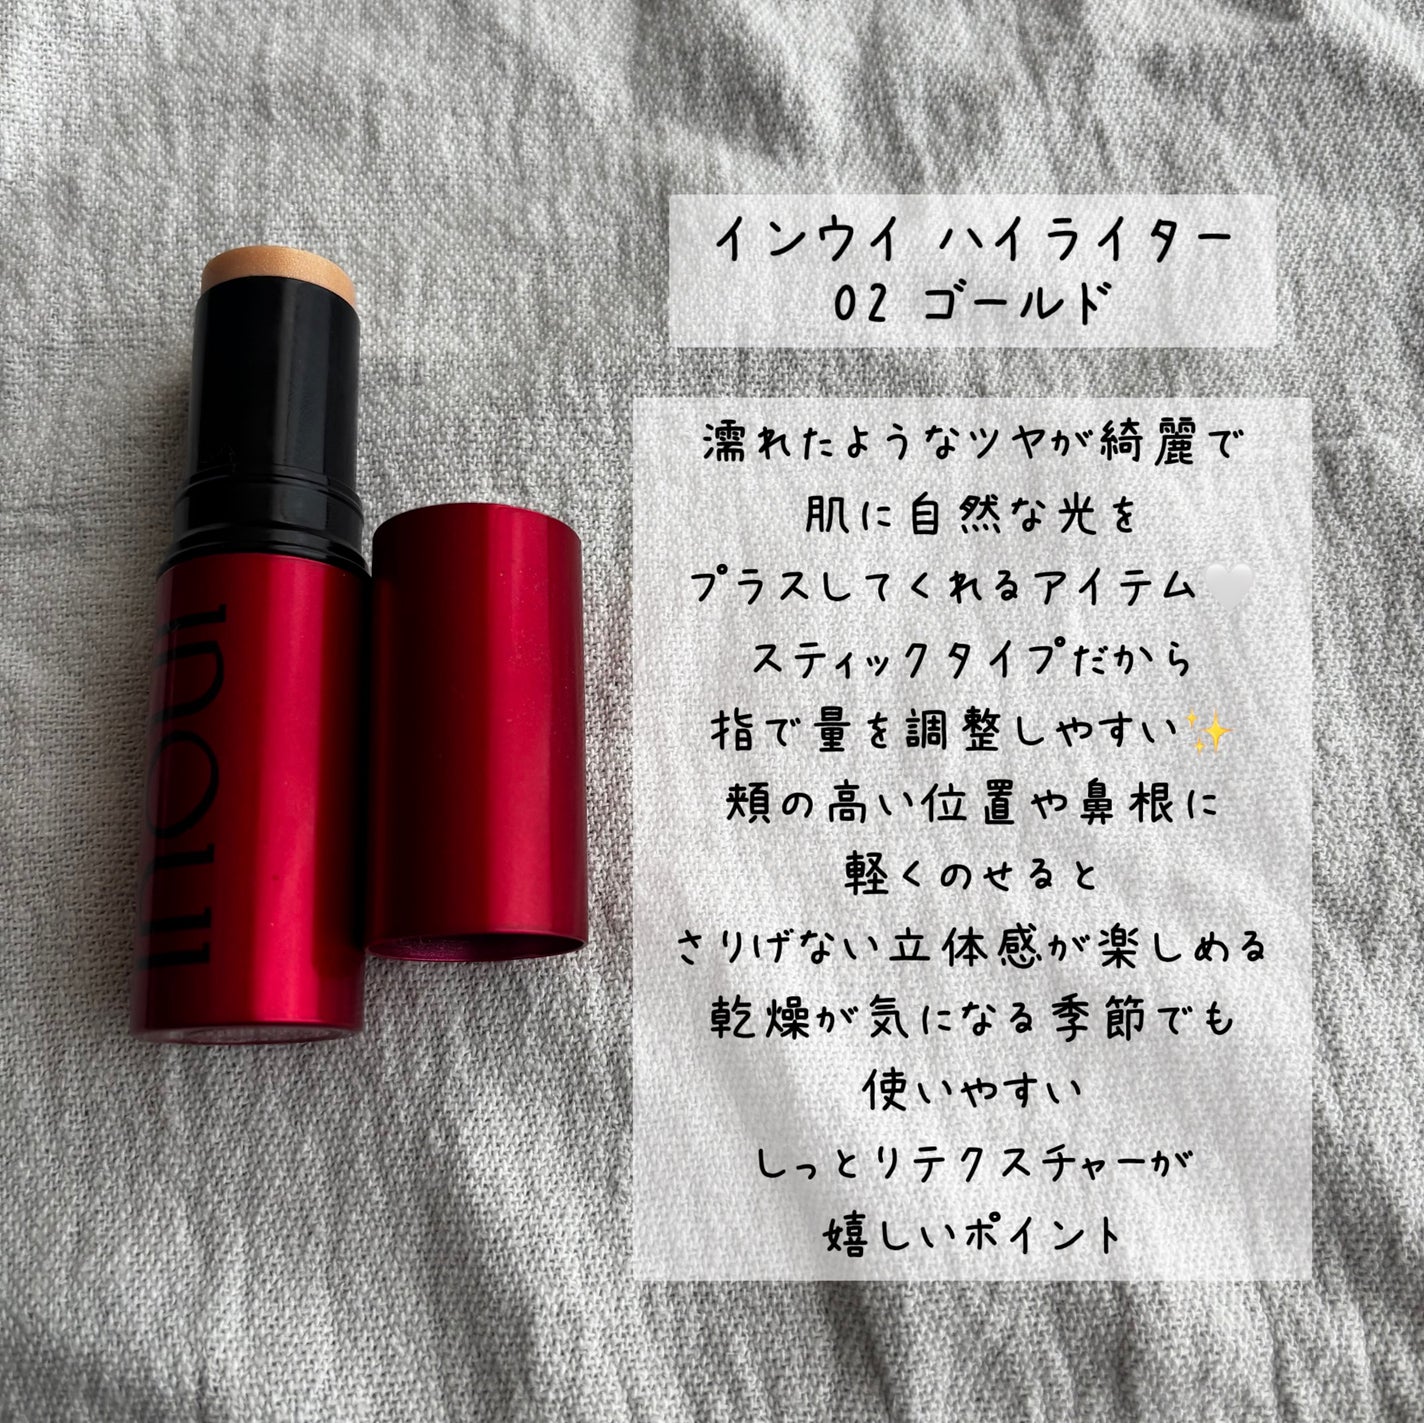 INOUI
インウイ ハイライター
02 ゴールド
濡れたようなツヤが綺麗で
肌に自然な光を
プラスしてくれるアイテム🤍
スティックタイプだから
指で量を調整しやすい✨
頬の高い位置や鼻根に
軽くのせると
さりげない立体感が楽しめる
乾燥が気になる季節でも
使いやすい
しっとりテクスチャーが
嬉しいポイント